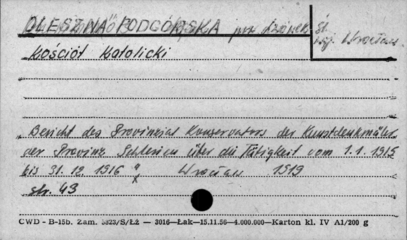 OLESZNA PODGÓRSKA
Śl.
woj. Wrocław
kościół katolicki
"Bericht des Provinzial Konservators der Kunstdenkmäler
der Provinz Schlesien über die Tätigkeit vom 1.1.1915
bis 31.12.1916" Wrocław 1919
str. 43
CWD - B-15b. Zam. 5823/S/Łż — 3016—Łak—15.11.56—4.000.000—Karton kl. IV A1/200 g